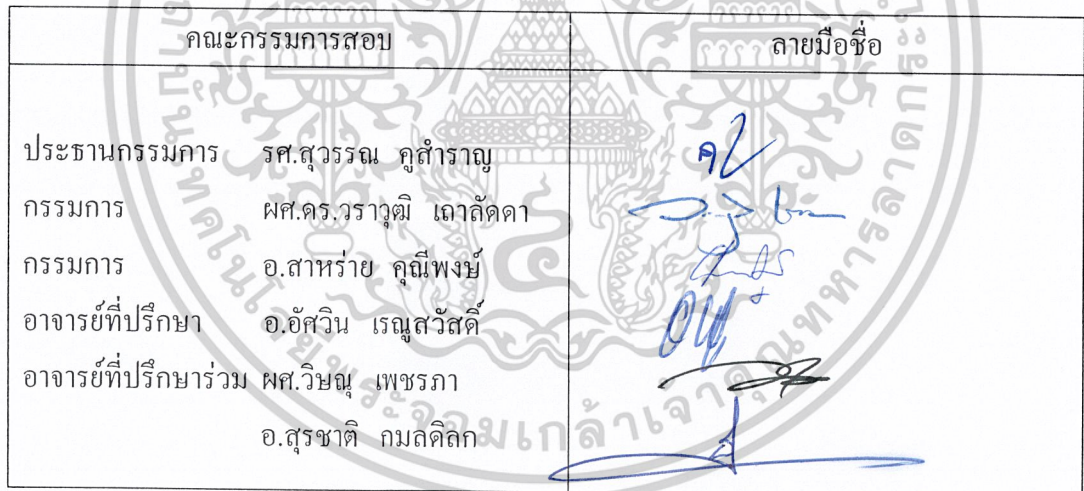 คณะกรรมการสอบ ลายมือชื่อ
ประธานกรรมการ รศ.สุวรรณ คูสำราญ
กรรมการ ผศ.ดร.วราวุฒิ เถาลัดดา
กรรมการ อ.สาหร่าย คุณีพงษ์
อาจารย์ที่ปรึกษา อ.อัศวิน เรณูสวัสดิ์
อาจารย์ที่ปรึกษาร่วม ผศ.วิษณุ เพชรภา
อ.สุรชาติ กมลดิลก
พระจอมเกล้าเจ้าคุณทหารลาดกระบัง